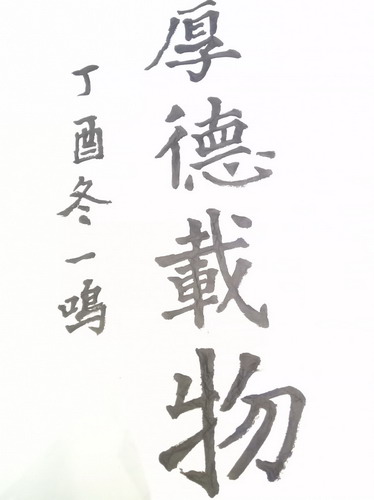 厚德載物
丁酉冬一鳴